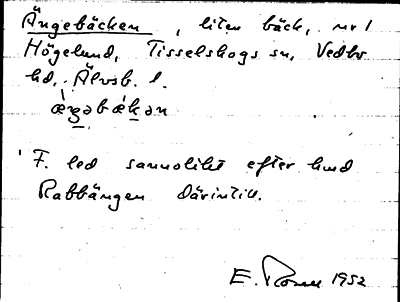 Ängebäcken, liten bäck, nr 1
Högelund, Tisselskogs sn, Vedbo
hd, Älvsb. l.
F. led sannolikt efter
Rabbängen därintill.
E. 1952